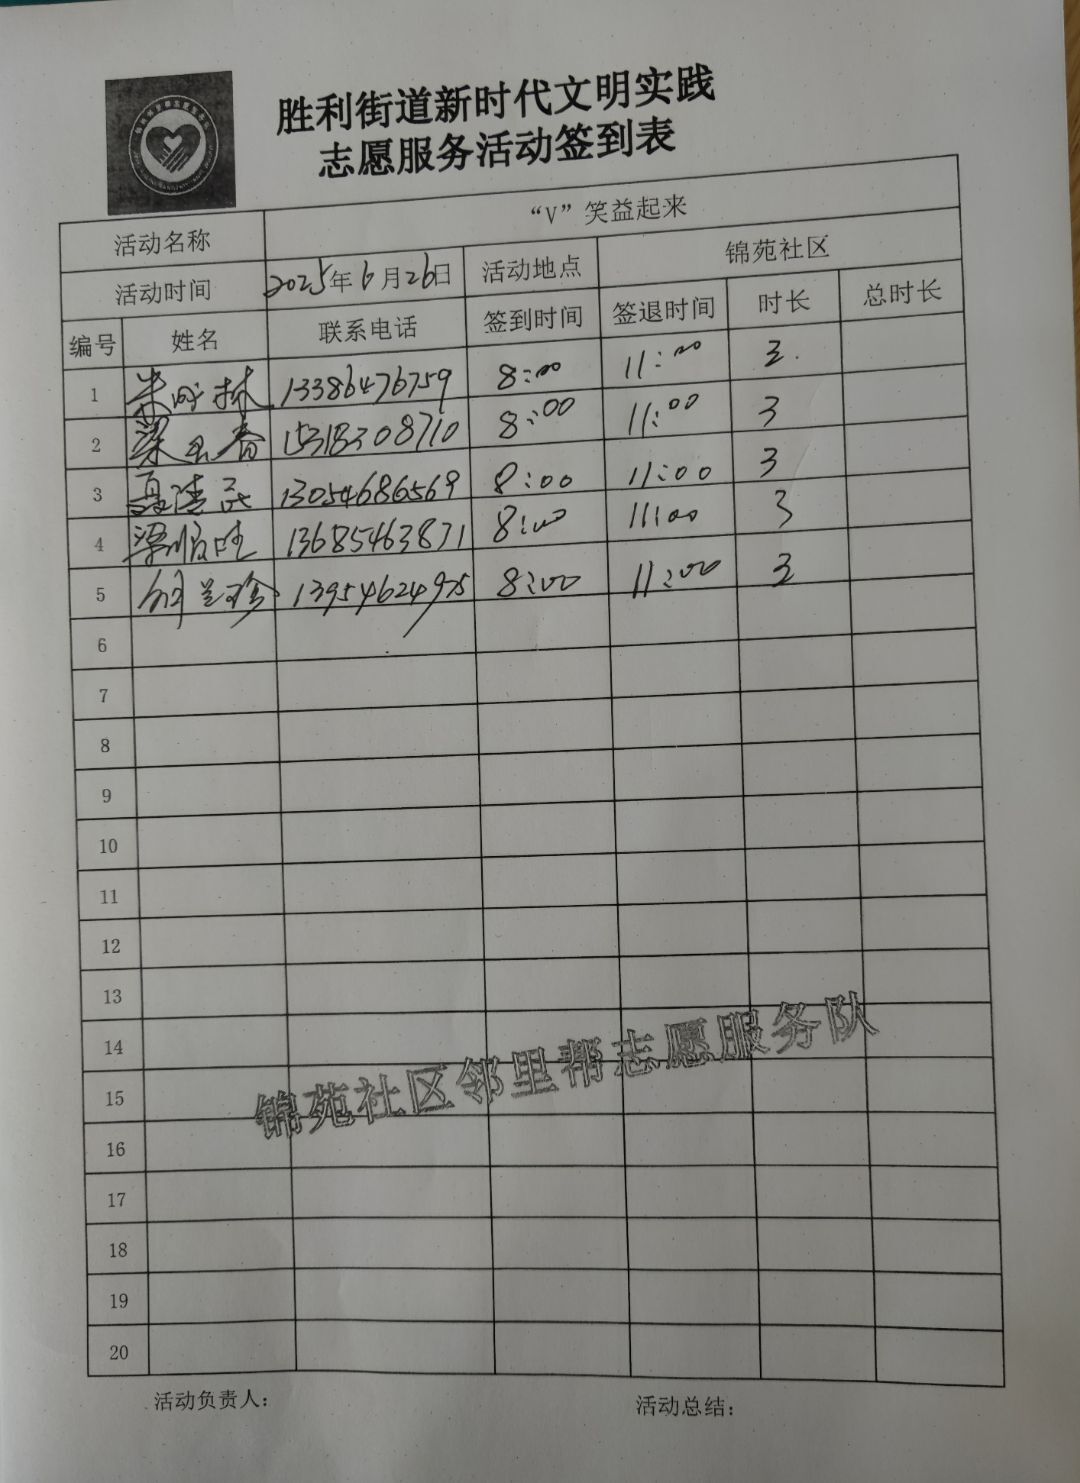 胜利街道新时代文明实践
志愿服务活动签到表
活动名称 “V”笑益起来
活动时间 2025年6月26日 活动地点 锦苑社区
编号 姓名 联系电话 签到时间 签退时间 时长 总时长
1 13386476759 8:00 11:00 3.
2 梁玉春 15318308710 8:00 11:00 3
3 13054686569 8:00 11:00 3
4 梁顺 13685463871 8:00 11:00 3
5 13954624975 8:00 11:00 3
6
7
8
9
10
11
12
13
14
15
锦苑社区邻里帮志愿服务队
16
17
18
19
20
活动负责人: 活动总结: